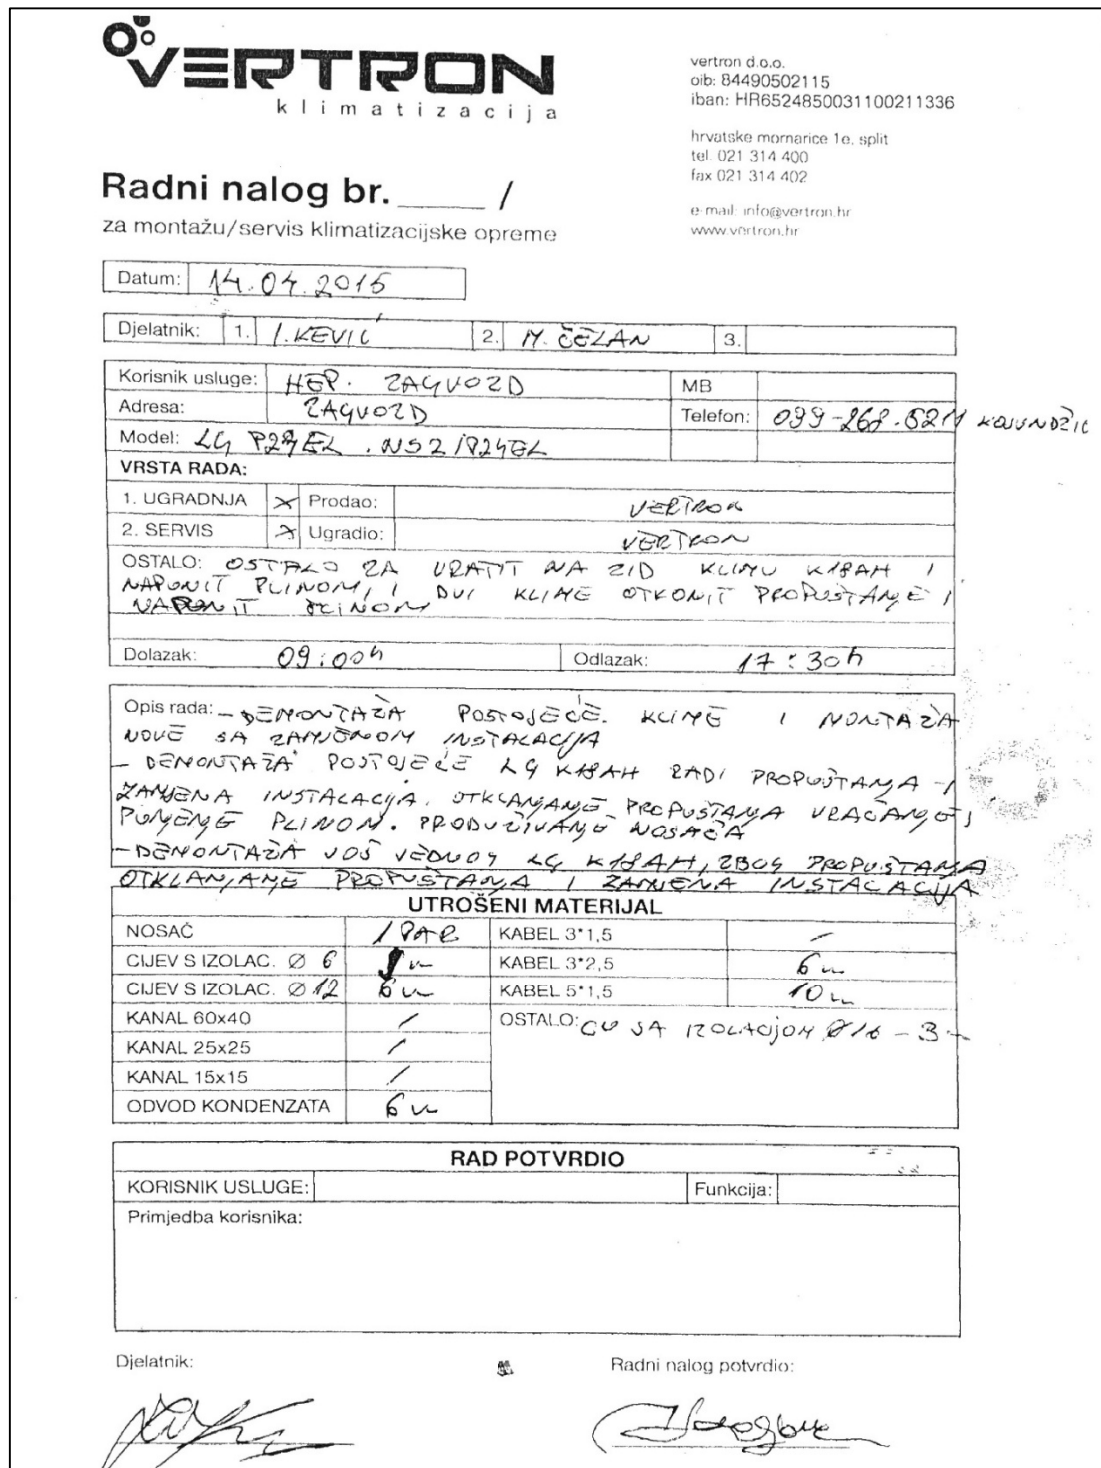 VERTRON
klimatizacija
vertron d.o.o.
oib: 84490502115
iban: HR6524850031100211336
hrvatske mornarice 1e, split
tel. 021 314 400
fax 021 314 402
e-mail: info@vertron.hr
www.vertron.hr
Radni nalog br. ______ /
za montažu/servis klimatizacijske opreme
Datum: 14.04.2015
Djelatnik: 1. I. KEVIĆ 2. M. ČELAN 3.
Korisnik usluge: HEP. ZAGVOZD MB
Adresa: ZAGVOZD Telefon: 099-268.
Model: LG
VRSTA RADA:
1. UGRADNJA X Prodao: VERTRON
2. SERVIS X Ugradio: VERTRON
OSTALO: OSTALO ZA VRATIT NA ZID KLIMU K18AH I
NAPUNIT PLINOM, I DVI KLIME OTKONIT PROPUŠTANJE I
NAPUNIT PLINOM
Dolazak: 09:00h Odlazak: 17:30h
Opis rada: - DEMONTAŽA POSTOJEĆE KLIME I MONTAŽA
NOVE SA ZAMJENOM INSTALACIJA
- DEMONTAŽA POSTOJEĆE LG K18AH RADI PROPUŠTANJA - I
ZAMJENA INSTALACIJA. OTKLANJANJE PROPUŠTANJA VRAĆANJE I
PUNJENJE PLINOM. PRODUŽIVANJE NOSAČA
- DEMONTAŽA JOŠ JEDNOG LG K18AH, ZBOG PROPUŠTANJA
OTKLANJANJE PROPUŠTANJA I ZAMJENA INSTALACIJA
UTROŠENI MATERIJAL
NOSAČ 1 PAR KABEL 3*1,5 /
CIJEV S IZOLAC. Ø 6 m KABEL 3*2,5 6 m
CIJEV S IZOLAC. Ø 12 6 m KABEL 5*1,5 10 m
KANAL 60x40 / OSTALO: CU SA IZOLACIJOM Ø16 - 3
KANAL 25x25 /
KANAL 15x15 /
ODVOD KONDENZATA 6 m
RAD POTVRDIO
KORISNIK USLUGE: Funkcija:
Primjedba korisnika:
Djelatnik: Radni nalog potvrdio: